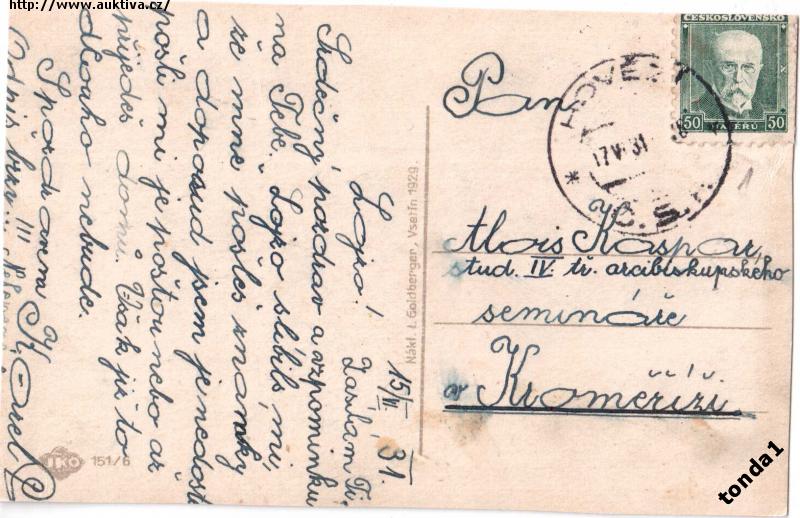 http://www.auktiva.cz/
15/VI 31.
Lojzo! Zasílám Ti
Srdečný pozdrav a vzpomínku
na Tebe. Lojzo slíbils mi,
že mně pošleš známky
a doposud jsem je nedostal
pošli mi je poštou nebo až
přijedeš domů. Však již to
dlouho nebude.
S pozdravem Karel
Odpis brzy!!!
151/6
Nákl. I. Goldberger, Vsetín 1929.
ČESKOSLOVENSKO
50 HALÉŘŮ 50
HOVĚZÍ
17 VI 31
Č.S.R.
Pan
Alois Kašpar,
stud. IV. tř. arcibiskupského
semináře
v Kroměříži
tonda1